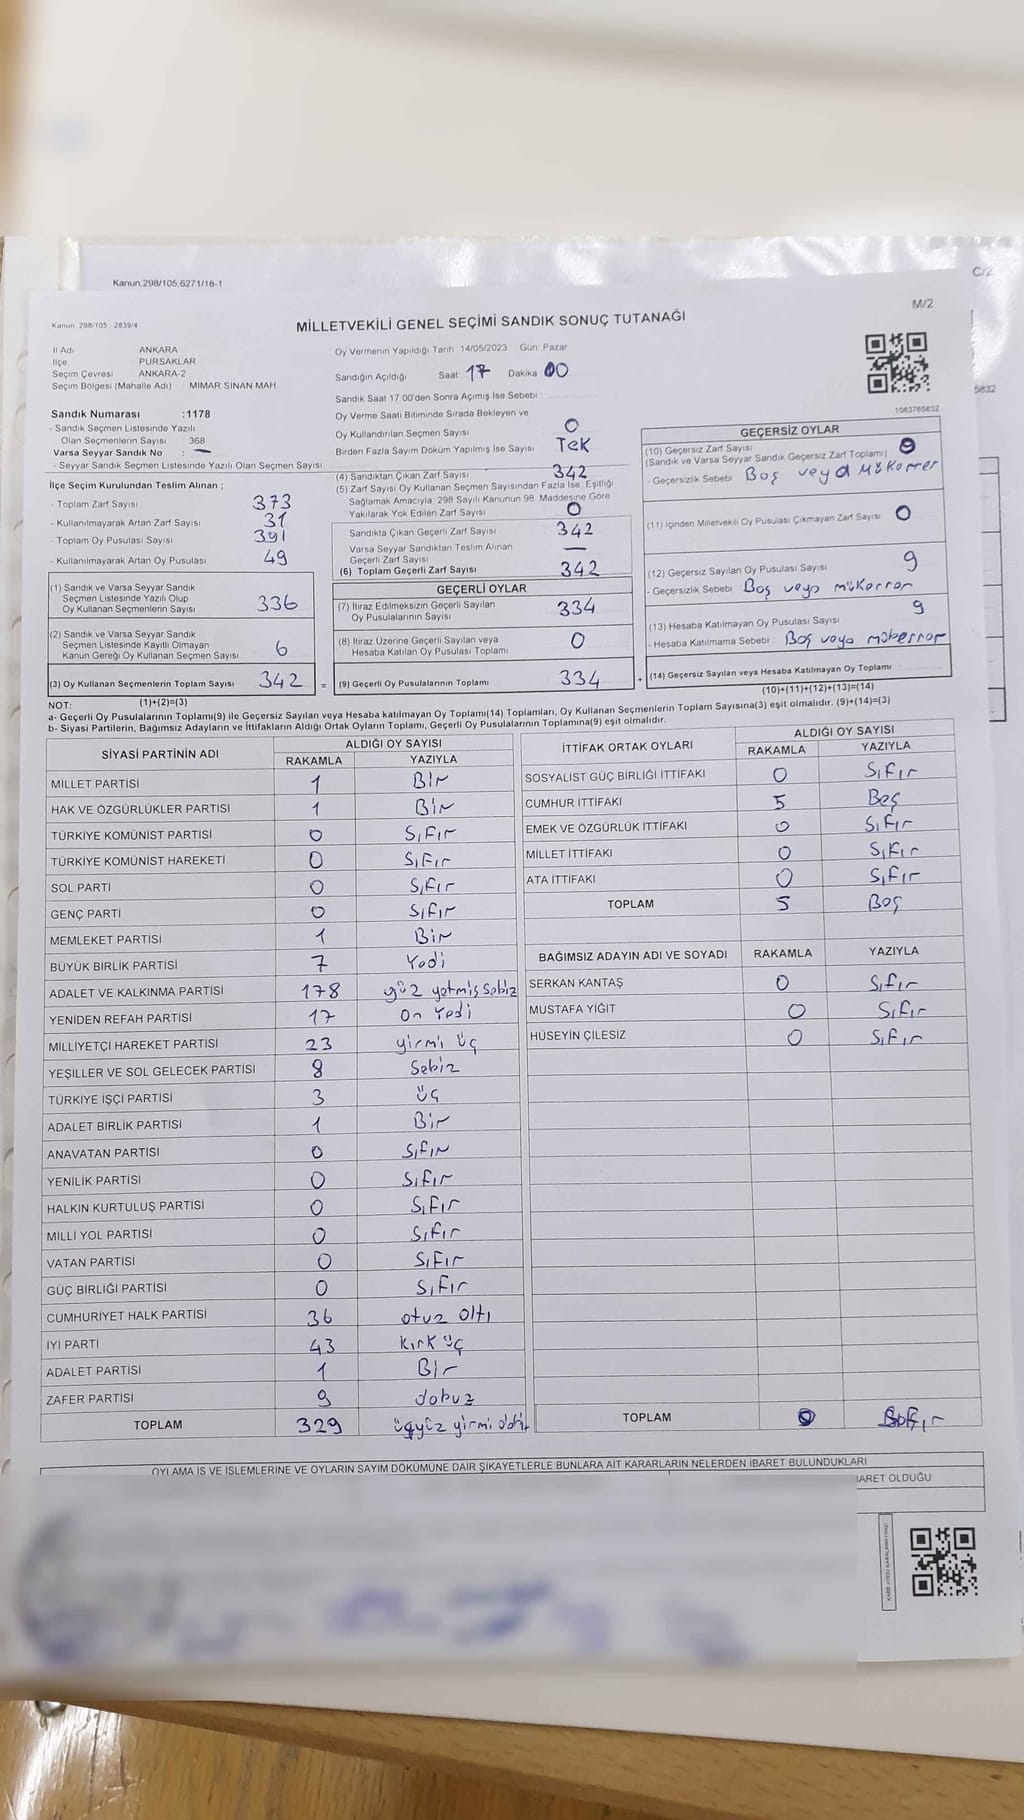 Kanun:298/105,6271/18-1
C/2
M/2
Kanun 298/105 2839/4
MİLLETVEKİLİ GENEL SEÇİMİ SANDIK SONUÇ TUTANAĞI
İl Adı ANKARA
İlçe PURSAKLAR
Seçim Çevresi ANKARA-2
Seçim Bölgesi (Mahalle Adı) : MİMAR SİNAN MAH
Sandık Numarası :1178
- Sandık Seçmen Listesinde Yazılı
Olan Seçmenlerin Sayısı 368
Varsa Seyyar Sandık No : —
- Seyyar Sandık Seçmen Listesinde Yazılı Olan Seçmen Sayısı
İlçe Seçim Kurulundan Teslim Alınan ;
- Toplam Zarf Sayısı 373
- Kullanılmayarak Artan Zarf Sayısı 31
- Toplam Oy Pusulası Sayısı 391
- Kullanılmayarak Artan Oy Pusulası 49
(1) Sandık ve Varsa Seyyar Sandık
Seçmen Listesinde Yazılı Olup
Oy Kullanan Seçmenlerin Sayısı 336
(2) Sandık ve Varsa Seyyar Sandık
Seçmen Listesinde Kayıtlı Olmayan
Kanun Gereği Oy Kullanan Seçmen Sayısı 6
(3) Oy Kullanan Seçmenlerin Toplam Sayısı 342 =
(1)+(2)=(3)
Oy Vermenin Yapıldığı Tarih :14/05/2023 Gün: Pazar
Sandığın Açıldığı Saat: 17 Dakika 00
Sandık Saat 17.00'den Sonra Açımış İse Sebebi
Oy Verme Saati Bitiminde Sırada Bekleyen ve
Oy Kullandırılan Seçmen Sayısı 0
Birden Fazla Sayım Döküm Yapılmış İse Sayısı TEK
(4) Sandıktan Çıkan Zarf Sayısı 342
(5) Zarf Sayısı Oy Kullanan Seçmen Sayısından Fazla İse, Eşitliği
Sağlamak Amacıyla; 298 Sayılı Kanunun 98. Maddesine Göre
Yakılarak Yok Edilen Zarf Sayısı 0
Sandıkta Çıkan Geçerli Zarf Sayısı 342
Varsa Seyyar Sandıktan Teslim Alınan
Geçerli Zarf Sayısı —
(6) Toplam Geçerli Zarf Sayısı 342
GEÇERLİ OYLAR
(7) İtiraz Edilmeksizin Geçerli Sayılan
Oy Pusulalarının Sayısı 334
(8) İtiraz Üzerine Geçerli Sayılan veya
Hesaba Katılan Oy Pusulası Toplamı 0
(9) Geçerli Oy Pusulalarının Toplamı 334 +
1083765832
5832
GEÇERSİZ OYLAR
(10) Geçersiz Zarf Sayısı
(Sandık ve Varsa Seyyar Sandık Geçersiz Zarf Toplamı)
- Geçersizlik Sebebi Boş veya Mükerrer
(11) İçinden Milletvekili Oy Pusulası Çıkmayan Zarf Sayısı 0
(12) Geçersiz Sayılan Oy Pusulası Sayısı 9
- Geçersizlik Sebebi Boş veya mükerrer
(13) Hesaba Katılmayan Oy Pusulası Sayısı 9
- Hesaba Katılmama Sebebi : Boş veya mükerrer
(14) Geçersiz Sayılan veya Hesaba Katılmayan Oy Toplamı
(10)+(11)+(12)+(13)=(14)
NOT:
a- Geçerli Oy Pusulalarının Toplamı(9) ile Geçersiz Sayılan veya Hesaba katılmayan Oy Toplamı(14) Toplamları, Oy Kullanan Seçmenlerin Toplam Sayısına(3) eşit olmalıdır. (9)+(14)=(3)
b- Siyasi Partilerin, Bağımsız Adayların ve İttifakların Aldığı Ortak Oyların Toplamı, Geçerli Oy Pusulalarının Toplamına(9) eşit olmalıdır.
SİYASİ PARTİNİN ADI ALDIĞI OY SAYISI
RAKAMLA YAZIYLA
MİLLET PARTİSİ 1 Bir
HAK VE ÖZGÜRLÜKLER PARTİSİ 1 Bir
TÜRKİYE KOMÜNİST PARTİSİ 0 Sıfır
TÜRKİYE KOMÜNİST HAREKETİ 0 Sıfır
SOL PARTİ 0 Sıfır
GENÇ PARTİ 0 Sıfır
MEMLEKET PARTİSİ 1 Bir
BÜYÜK BİRLİK PARTİSİ 7 Yedi
ADALET VE KALKINMA PARTİSİ 178 yüz yetmiş Sekiz
YENİDEN REFAH PARTİSİ 17 On Yedi
MİLLİYETÇİ HAREKET PARTİSİ 23 yirmi üç
YEŞİLLER VE SOL GELECEK PARTİSİ 8 Sekiz
TÜRKİYE İŞÇİ PARTİSİ 3 üç
ADALET BİRLİK PARTİSİ 1 Bir
ANAVATAN PARTİSİ 0 Sıfır
YENİLİK PARTİSİ 0 Sıfır
HALKIN KURTULUŞ PARTİSİ 0 Sıfır
MİLLİ YOL PARTİSİ 0 Sıfır
VATAN PARTİSİ 0 Sıfır
GÜÇ BİRLİĞİ PARTİSİ 0 Sıfır
CUMHURİYET HALK PARTİSİ 36 otuz altı
İYİ PARTİ 43 kırk üç
ADALET PARTİSİ 1 Bir
ZAFER PARTİSİ 9 dokuz
TOPLAM 329 üçyüz yirmi
İTTİFAK ORTAK OYLARI ALDIĞI OY SAYISI
RAKAMLA YAZIYLA
SOSYALİST GÜÇ BİRLİĞİ İTTİFAKI 0 Sıfır
CUMHUR İTTİFAKI 5 Beş
EMEK VE ÖZGÜRLÜK İTTİFAKI 0 Sıfır
MİLLET İTTİFAKI 0 Sıfır
ATA İTTİFAKI 0 Sıfır
TOPLAM 5 Beş
BAĞIMSIZ ADAYIN ADI VE SOYADI RAKAMLA YAZIYLA
SERKAN KANTAŞ 0 Sıfır
MUSTAFA YİĞİT 0 Sıfır
HÜSEYİN ÇİLESİZ 0 Sıfır
TOPLAM 0
OYLAMA İŞ VE İŞLEMLERİNE VE OYLARIN SAYIM DÖKÜMÜNE DAİR ŞİKAYETLERLE BUNLARA AİT KARARLARIN NELERDEN İBARET BULUNDUKLARI
BARET OLDUĞU